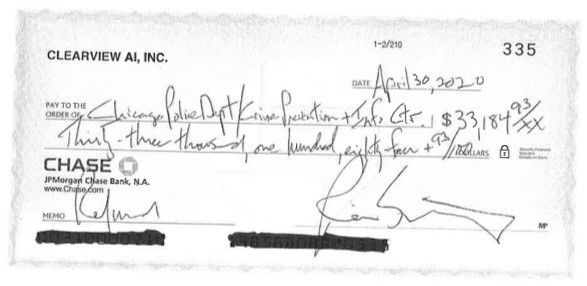 1-2/210 335
CLEARVIEW AI, INC.
DATE April 30, 2020
PAY TO THE
ORDER OF Chicago Police Dept/Crime Prevention + Info Ctr. $ 33,184 93/XX
Thirty-three thousand, one hundred, eighty-four + 93/100 DOLLARS
CHASE
JPMorgan Chase Bank, N.A.
www.Chase.com
MEMO Refund
MP